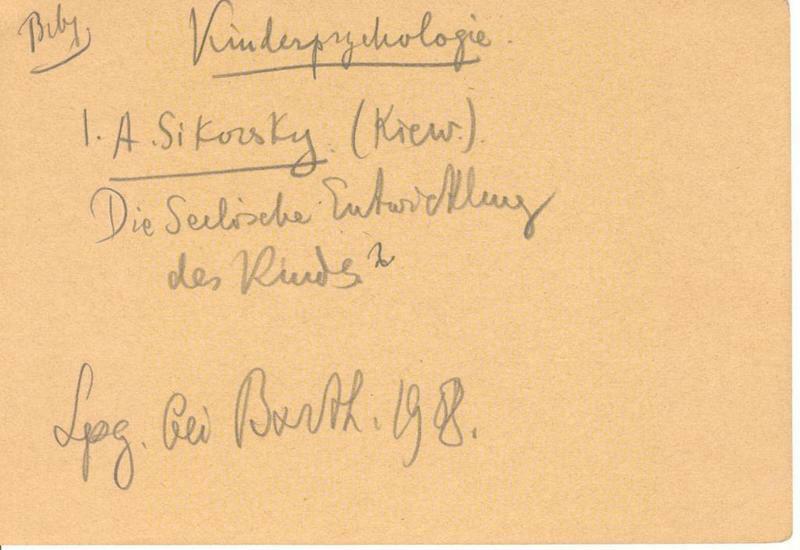 Kinderpsychologie.
I. A. Sikorsky. (Kiew.)
Die Seelische Entwicklung
des Kindes ²
Lpzg. bei Barth. 1908.